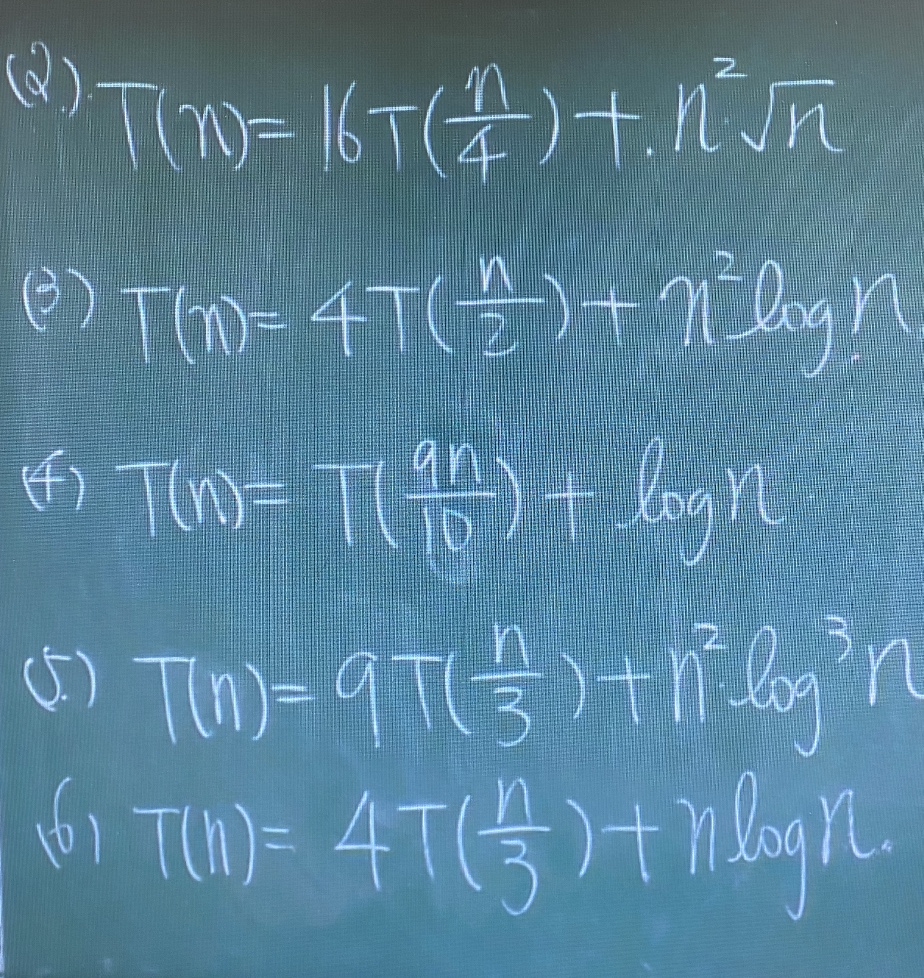 (2). T(n) = 16T(n/4) + n²√n
(3) T(n) = 4T(n/2) + n² log n
(4) T(n) = T(9n/10) + log n
(5) T(n) = 9T(n/3) + n² log³ n
(6) T(n) = 4T(n/3) + n log n.